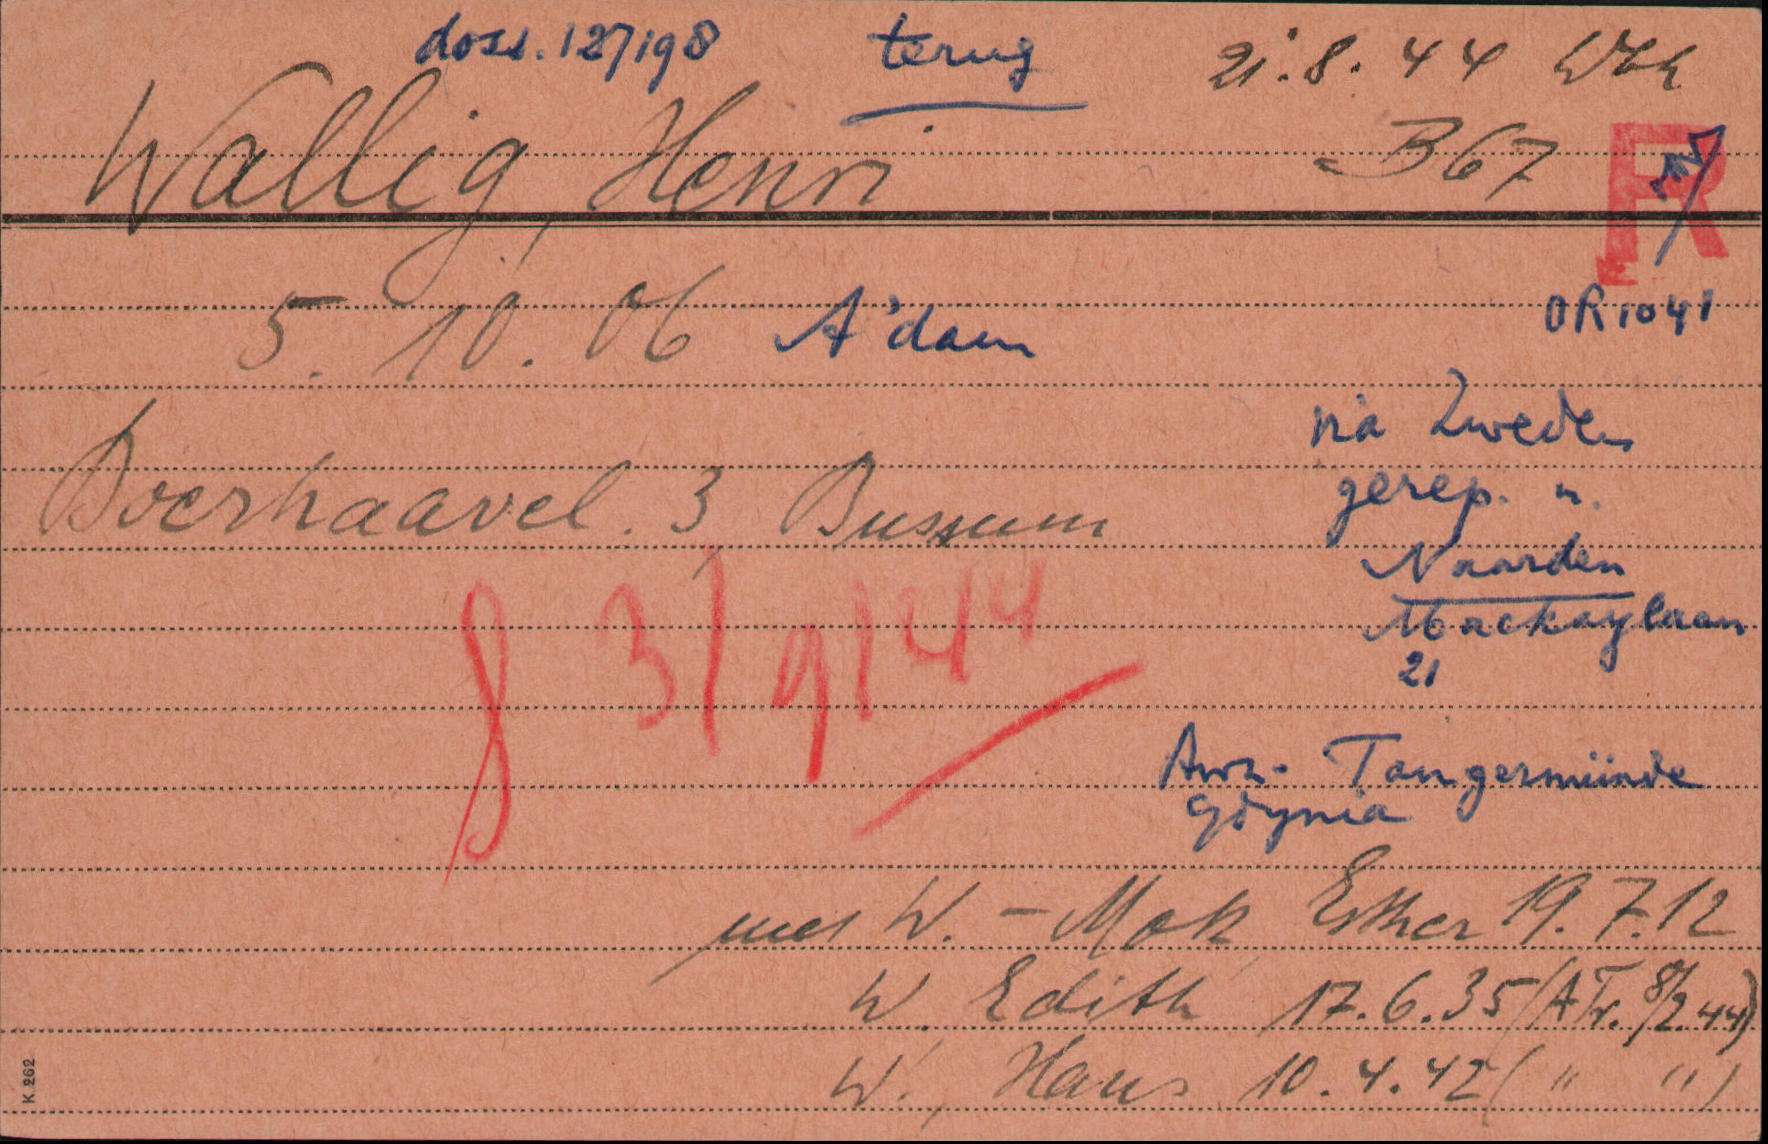 doss. 127198 terug 21.8.44 Wbk
Wallig, Henri B 67 R
5. 10. 06 A'dam OR 1041
via Zweden
gerep. n.
Boerhaavel. 3, Bussum
Naarden
Mackaylaan
21
3/9/44
Ausch. Tangermünde
Gdynia
met W. - Mok, Esther 19.7.12
W. Edith 17.6.35 (A Tr. 8/2.44)
W., Hans 10.4.42 ( " " )
K. 262